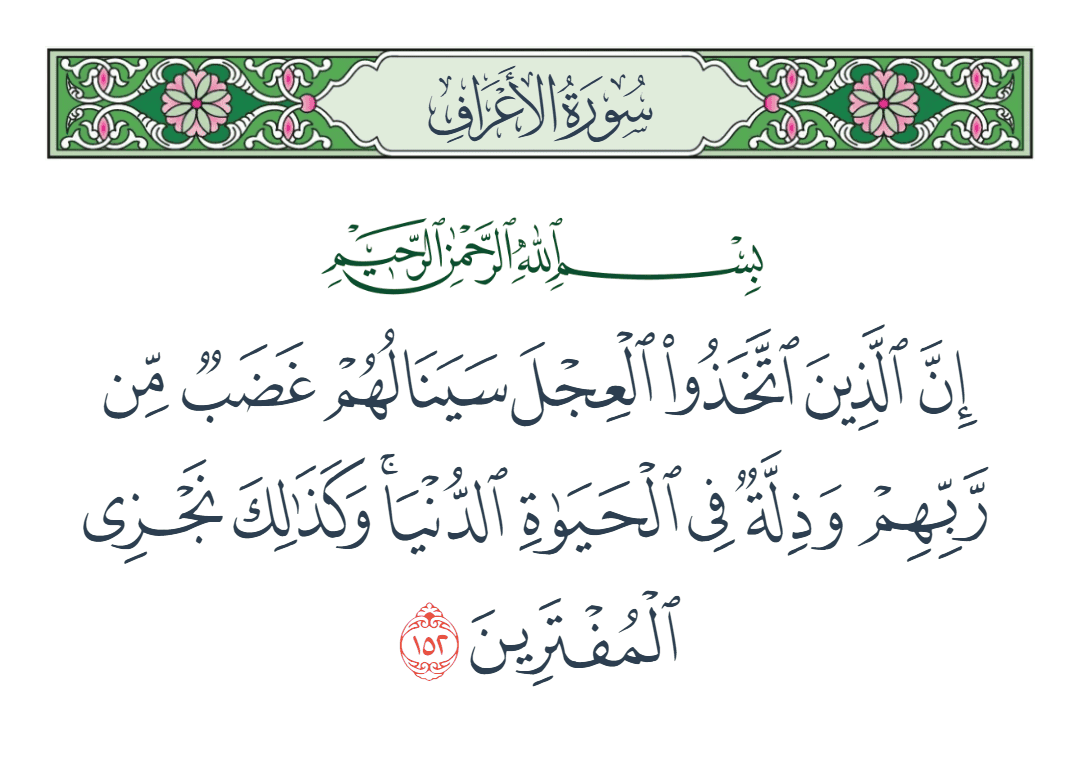 سُورَةُ الأَعْرَافِ
بِسْمِ ٱللَّهِ ٱلرَّحْمَٰنِ ٱلرَّحِيمِ
إِنَّ ٱلَّذِينَ ٱتَّخَذُوا۟ ٱلْعِجْلَ سَيَنَالُهُمْ غَضَبٌ مِّن
رَّبِّهِمْ وَذِلَّةٌ فِى ٱلْحَيَوٰةِ ٱلدُّنْيَا ۚ وَكَذَٰلِكَ نَجْزِى
ٱلْمُفْتَرِينَ ١٥٢